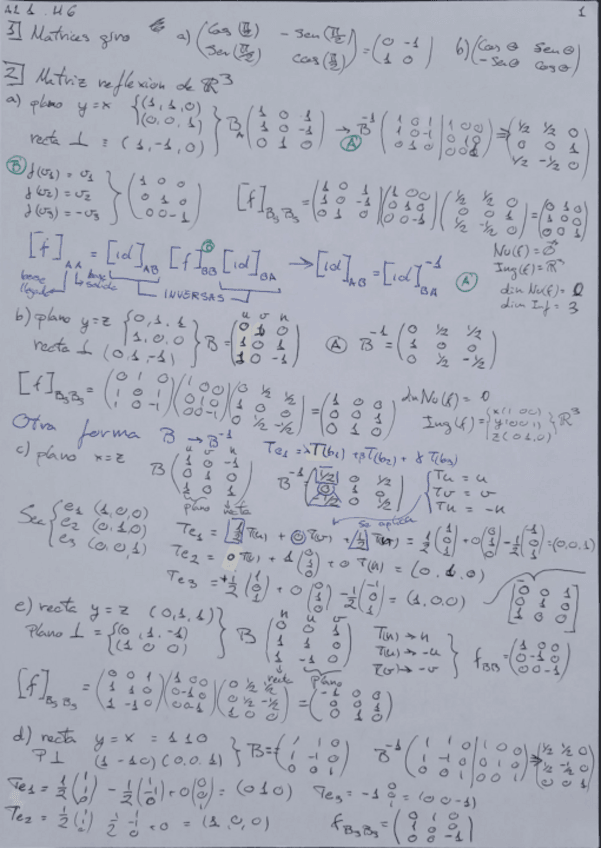 1
1] Matrices giro a) (Cos(π/2) -Sen(π/2) / Sen(π/2) Cos(π/2)) = (0 -1 / 1 0) b) (Cos θ Sen θ / -Sen θ Cos θ)
2] Matriz reflexion de ℝ³
a) plano y=x {(1,1,0) (0,0,1)
recta ⊥ = (1,-1,0)
B (1 0 1 / 1 0 -1 / 0 1 0) → B⁻¹ (1 0 1 / 1 0 -1 / 0 1 0 | 1 0 0 / 0 1 0 / 0 0 1) ⇒ (1/2 1/2 0 / 0 0 1 / 1/2 -1/2 0)
B f(v1) = v1
f(v2) = v2
f(v3) = -v3
(1 0 0 / 0 1 0 / 0 0 -1) [f]B3B3 = (1 0 1 / 1 0 -1 / 0 1 0)(1 0 0 / 0 1 0 / 0 0 -1)(1/2 1/2 0 / 0 0 1 / 1/2 -1/2 0) = (0 1 0 / 1 0 0 / 0 0 1)
[f]AA = [id]AB [f]BB [id]BA → [id]AB = [id]BA⁻¹ A
base llegada base salida INVERSAS
Nu(f) = 0
Img(f) = ℝ³
dim Nu(f) = 0
dim Inf = 3
b) plano y=z {0,1,1 / 1,0,0
recta ⊥ (0,1,-1)
B = u v n (0 1 0 / 1 0 1 / 1 0 -1) A B⁻¹ = (0 1/2 1/2 / 1 0 0 / 0 1/2 -1/2)
[f]B3B3 = (0 1 0 / 1 0 1 / 1 0 -1)(1 0 0 / 0 1 0 / 0 0 -1)(0 1/2 1/2 / 1 0 0 / 0 1/2 -1/2) = (1 0 0 / 0 0 1 / 0 1 0)
dim Nu(f) = 0
Img(f) = {x(1 0 0) y(0 0 1) z(0 1 0)} ℝ³
Otra forma B → B⁻¹
c) plano x=z B u v n (1 0 -1 / 0 1 0 / 1 0 1) plano recta
B⁻¹ (1/2 0 1/2 / 0 1 0 / 0 1/2) {Tu = u Tv = v Tn = -n
se aplica
Sea {e1 (1,0,0) e2 (0,1,0) e3 (0,0,1)
Te1 = 1/2 T(u) + 0 T(v) + 1/2 T(n) = 1/2 (1 0 1) + 0 (0 1 0) - 1/2 (-1 0 1) = (0,0,1)
Te2 = 0 T(u) + 1 (0 1 0) + 0 T(n) = (0,1,0)
Te3 = 1/2 (1 0 1) + 0 (0 1 0) - 1/2 (-1 0 1) = (1,0,0)
[0 0 1 / 0 1 0 / 1 0 0]
e) recta y=z (0,1,1)
Plano ⊥ = {(0,1,-1) (1 0 0)
B n u v (0 0 1 / 1 1 0 / 1 -1 0) recta plano
T(n) → n
T(u) → -u
T(v) → -v
fBB = (1 0 0 / 0 -1 0 / 0 0 -1)
[f]B3B3 = (0 0 1 / 1 1 0 / 1 -1 0)(1 0 0 / 0 -1 0 / 0 0 -1)(0 1/2 1/2 / 0 1/2 -1/2 / 1 0 0) = (-1 0 0 / 0 0 1 / 0 1 0)
d) recta y = x = 1 1 0
P⊥ (1 -1 0) (0 0 1)
B = (1 1 0 / 1 -1 0 / 0 0 1) B⁻¹ (1 1 0 / 1 -1 0 / 0 0 1 | 1 0 0 / 0 1 0 / 0 0 1) ⇒ (1/2 1/2 0 / 1/2 -1/2 0 / 0 0 1)
Te1 = 1/2 (1 1 0) - 1/2 (1 -1 0) + 0 (0 0 1) = (0 1 0) Te3 = -1 0 0 1 = (0 0 -1)
Te2 = 1/2 (1 1 0) 1/2 1 -1 0 + 0 = (1,0,0) fB3B3 = (0 1 0 / 1 0 0 / 0 0 -1)